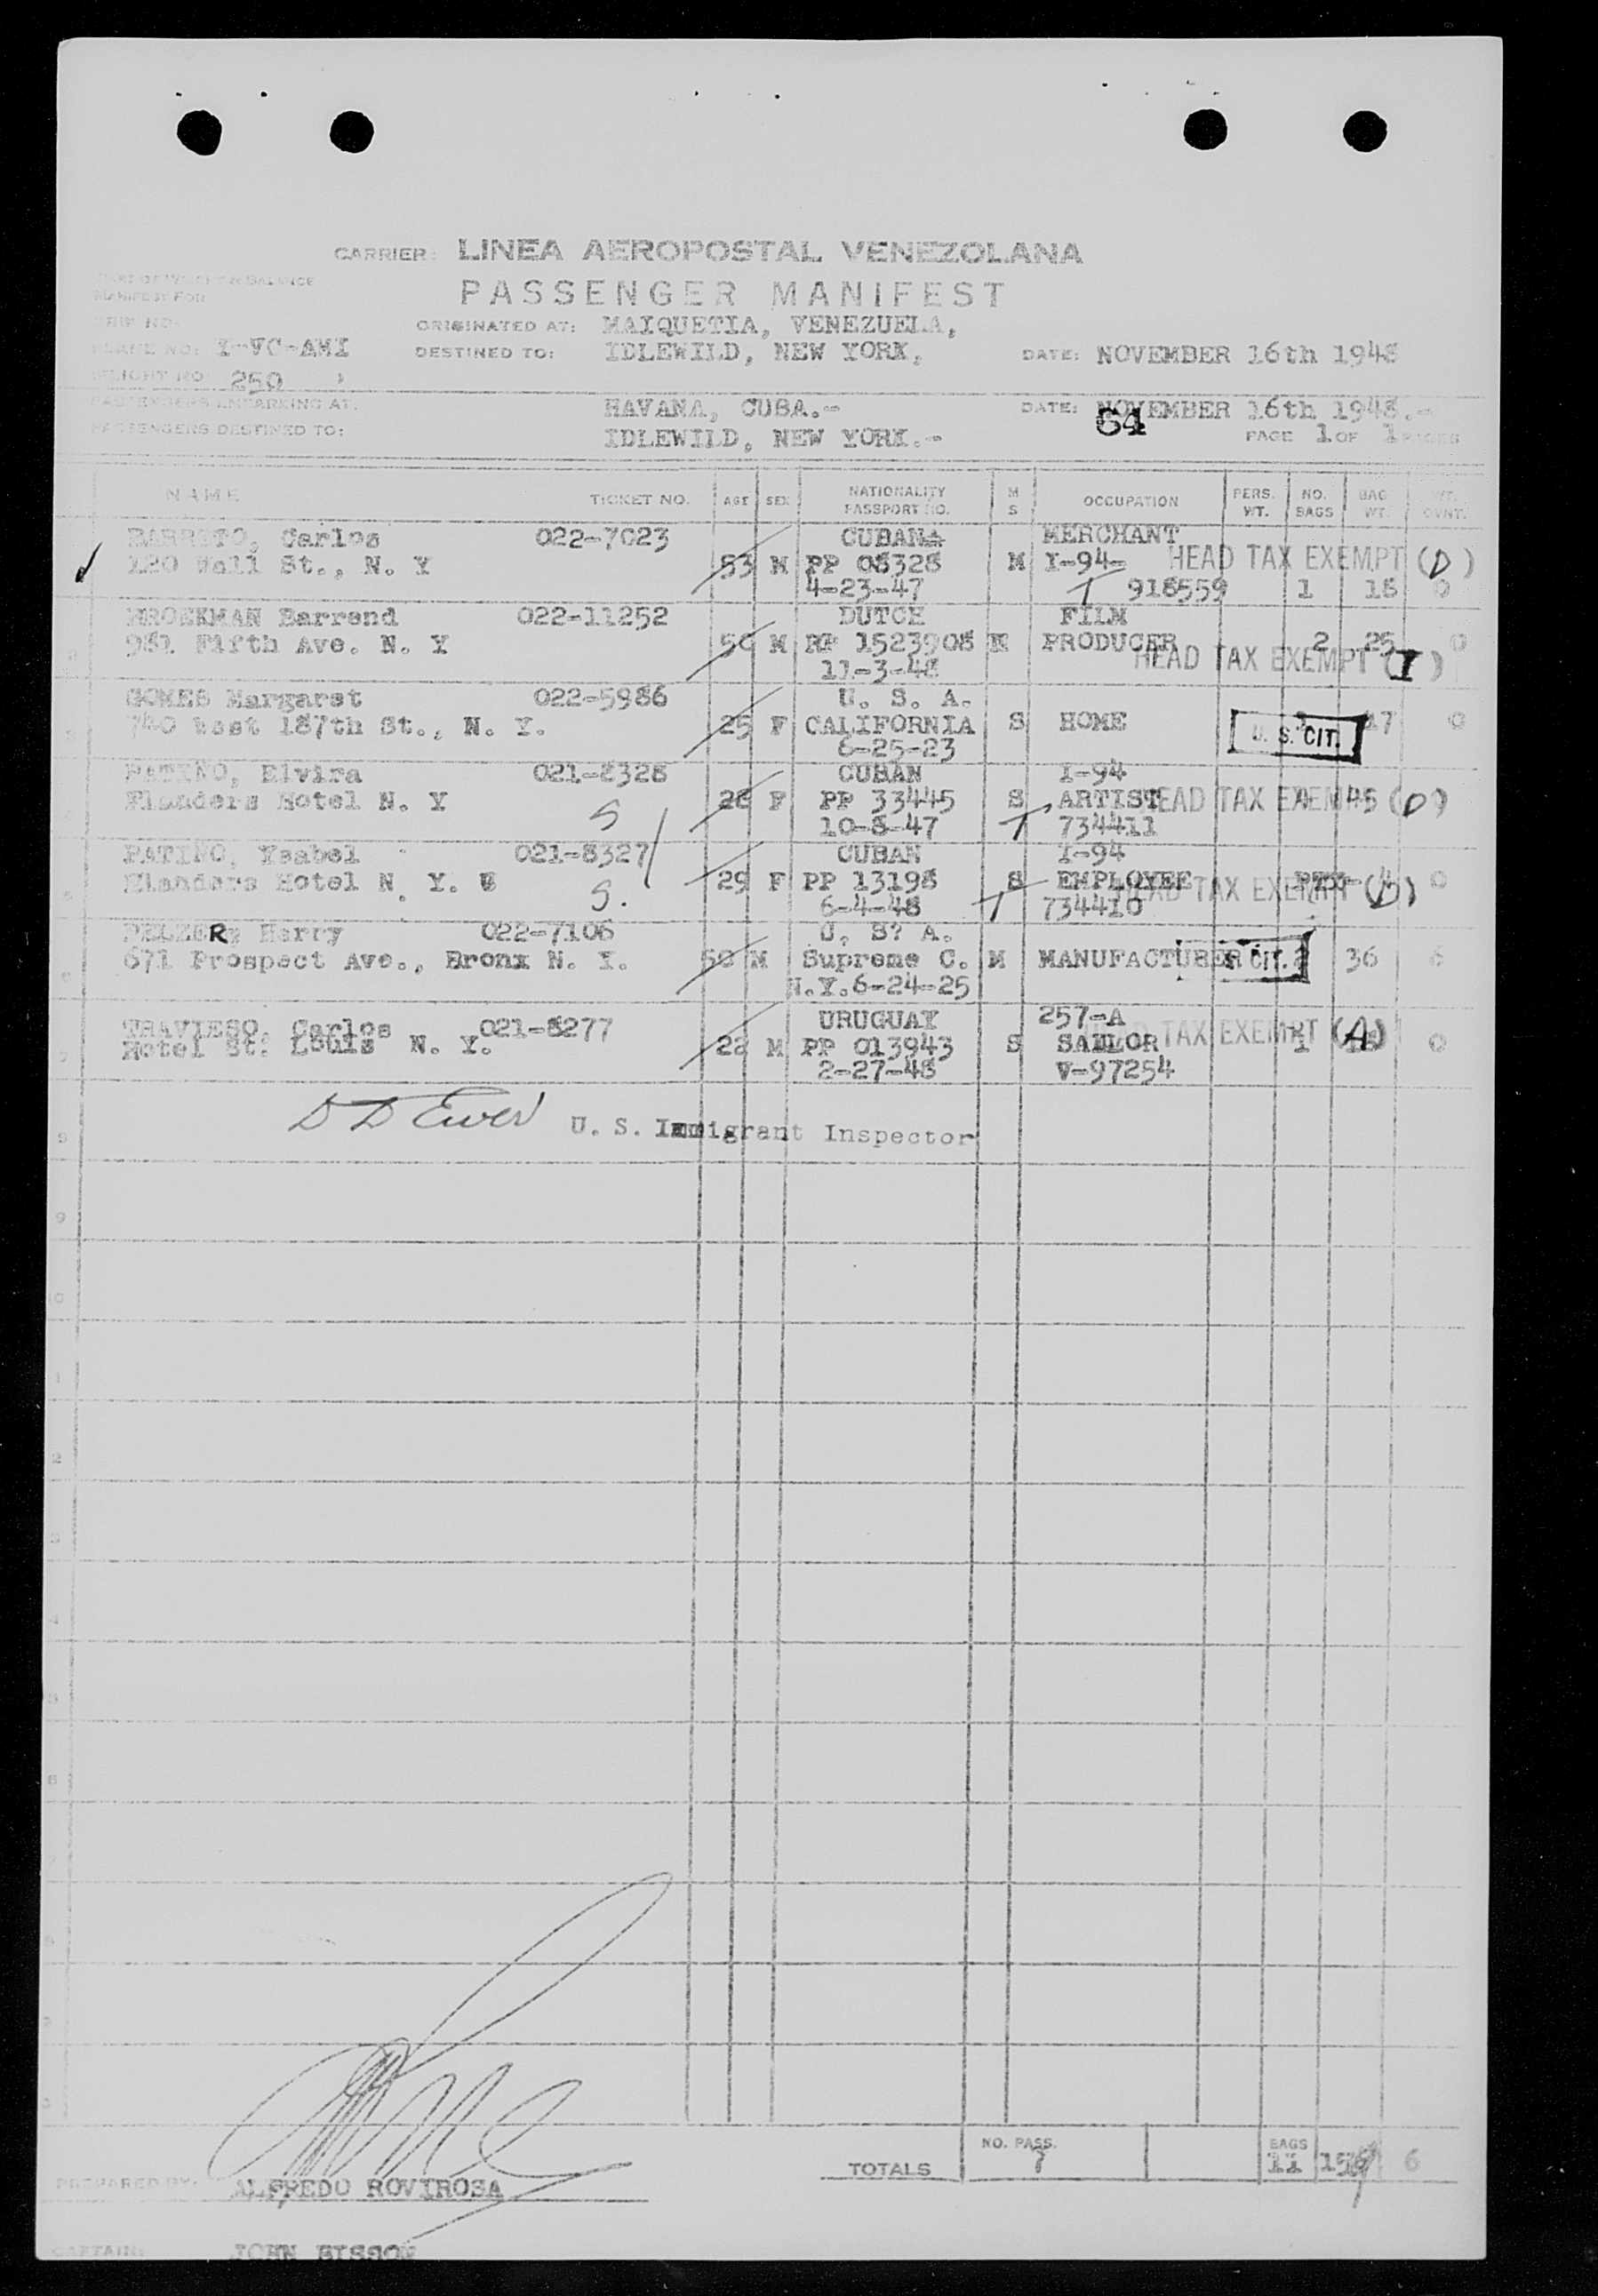 CARRIER: LINEA AEROPOSTAL VENEZOLANA
PART OF WEIGHT & BALANCE
MANIFEST FOR
PASSENGER MANIFEST
TRIP NO.
ORIGINATED AT: MAIQUETIA, VENEZUELA,
PLANE NO: Y-VC-AMI DESTINED TO: IDLEWILD, NEW YORK, DATE: NOVEMBER 16th 1948
FLIGHT NO 250
PASSENGERS EMBARKING AT: HAVANA, CUBA.- DATE: NOVEMBER 16th 1948.-
64
PASSENGERS DESTINED TO: IDLEWILD, NEW YORK.- PAGE 1 OF 1 PAGES
NAME TICKET NO. AGE SEX NATIONALITY PASSPORT NO. M S OCCUPATION PERS. WT. NO. BAGS BAG WT. WT. OVNT.
BARRETO, Carlos 022-7023 CUBAN MERCHANT
120 Wall St., N. Y 53 M PP 08328 M I-94- HEAD TAX EXEMPT (D)
4-23-47 T 918559 1 18 0
BROEKMAN Barrend 022-11252 DUTCH FILM
981 Fifth Ave. N. Y M RP 1523908 PRODUCER 2 25 0
11-3-48 HEAD TAX EXEMPT (I)
GOMES Margaret 022-5986 U. S. A.
740 East 187th St., N. Y. 25 F CALIFORNIA S HOME 17 0
6-25-23 U. S. CIT.
PATIÑO, Elvira 021-8328 CUBAN I-94
Flanders Hotel N. Y 28 F PP 33445 S ARTIST HEAD TAX EXEMPT (D)
S 10-8-47 T 734411
PATIÑO, Ysabel 021-8327 CUBAN I-94
Flanders Hotel N. Y. 29 F PP 13198 S EMPLOYEE HEAD TAX EXEMPT (D) 0
S. 6-4-48 T 734410
PELZER, Harry 022-7106 U. S? A.
671 Prospect Ave., Bronx N. Y. M Supreme C. M MANUFACTURER U. S. CIT. 2 36 6
N.Y.6-24-25
TRAVIESO, Carlos 021-8277 URUGUAY 257-A
Hotel St. Louis N. Y. 22 M PP 013943 S SAILOR HEAD TAX EXEMPT (A) 1 0
2-27-48 V-97254
D D Ewer U. S. Immigrant Inspector
TOTALS NO. PASS. 7 BAGS 11 6
PREPARED BY: ALFREDO ROVIROSA
CAPTAIN: JOHN SISSON